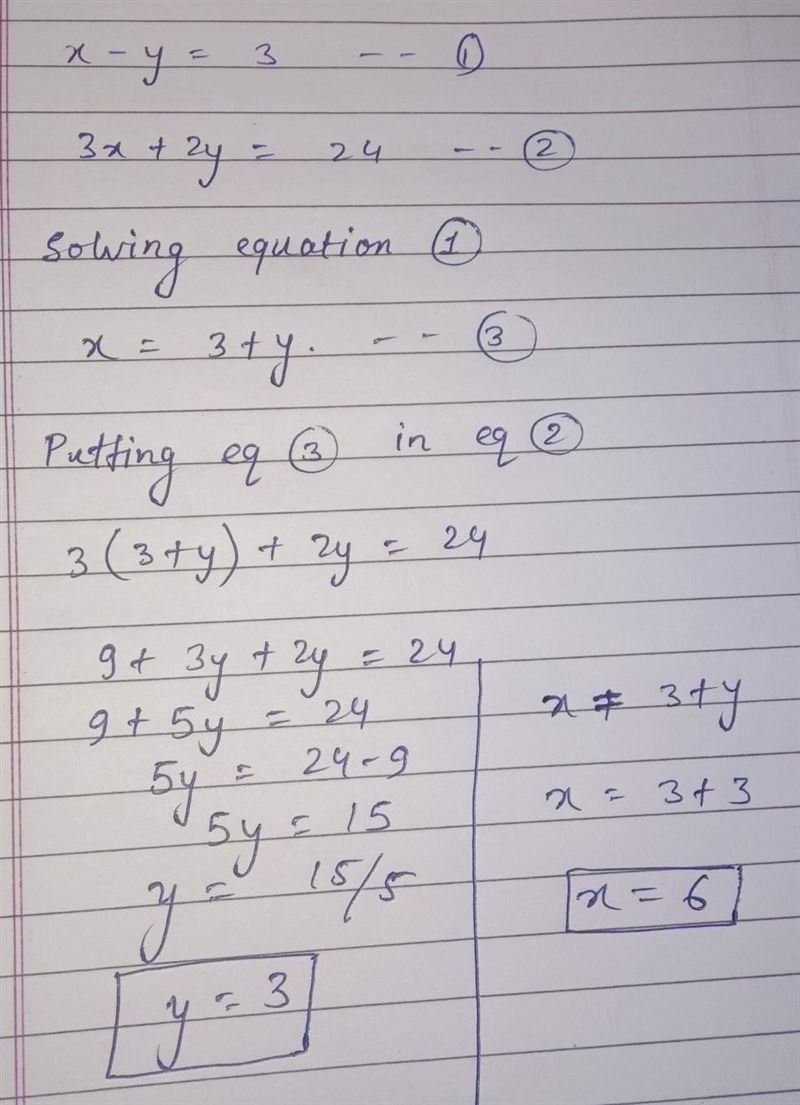 x - y = 3 -- ①
3x + 2y = 24 -- ②
Solving equation ①
x = 3 + y. -- ③
Putting eq ③ in eq ②
3(3+y) + 2y = 24
9 + 3y + 2y = 24
9 + 5y = 24
5y = 24 - 9
5y = 15
y = 15/5
y = 3
x = 3 + y
x = 3 + 3
x = 6